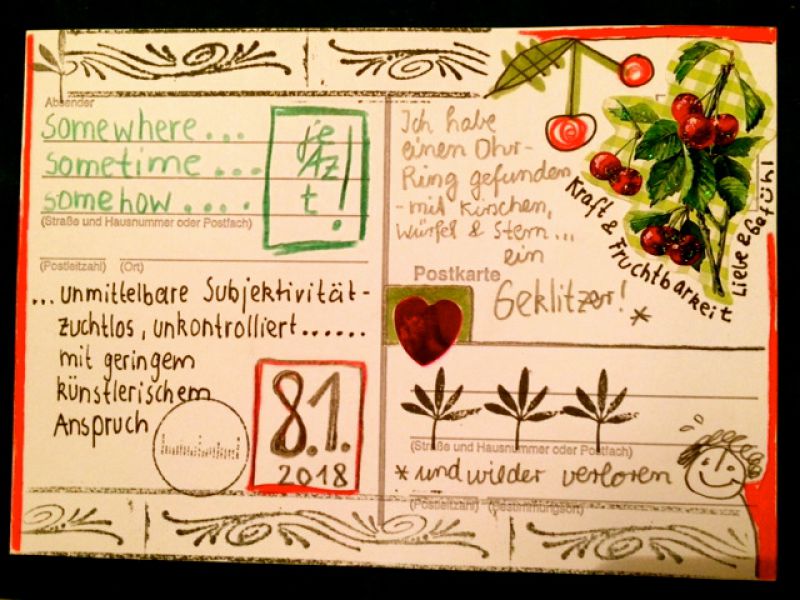 Absender
somewhere...
sometime ...
somehow ....
je
tzt!
(Straße und Hausnummer oder Postfach)
(Postleitzahl) (Ort)
... unmittelbare Subjektivität-
zuchtlos, unkontrolliert......
mit geringem
künstlerischem
Anspruch
8.1.
2018
Ich habe
einen Ohr-
Ring gefunden
- mit Kirschen,
Würfel & Stern...
ein
Postkarte
Geklitzer! *
Kraft & Fruchtbarkeit
Liebe & Gefühl
(Straße und Hausnummer oder Postfach)
* und wieder verloren
(Postleitzahl) (Bestimmungsort)